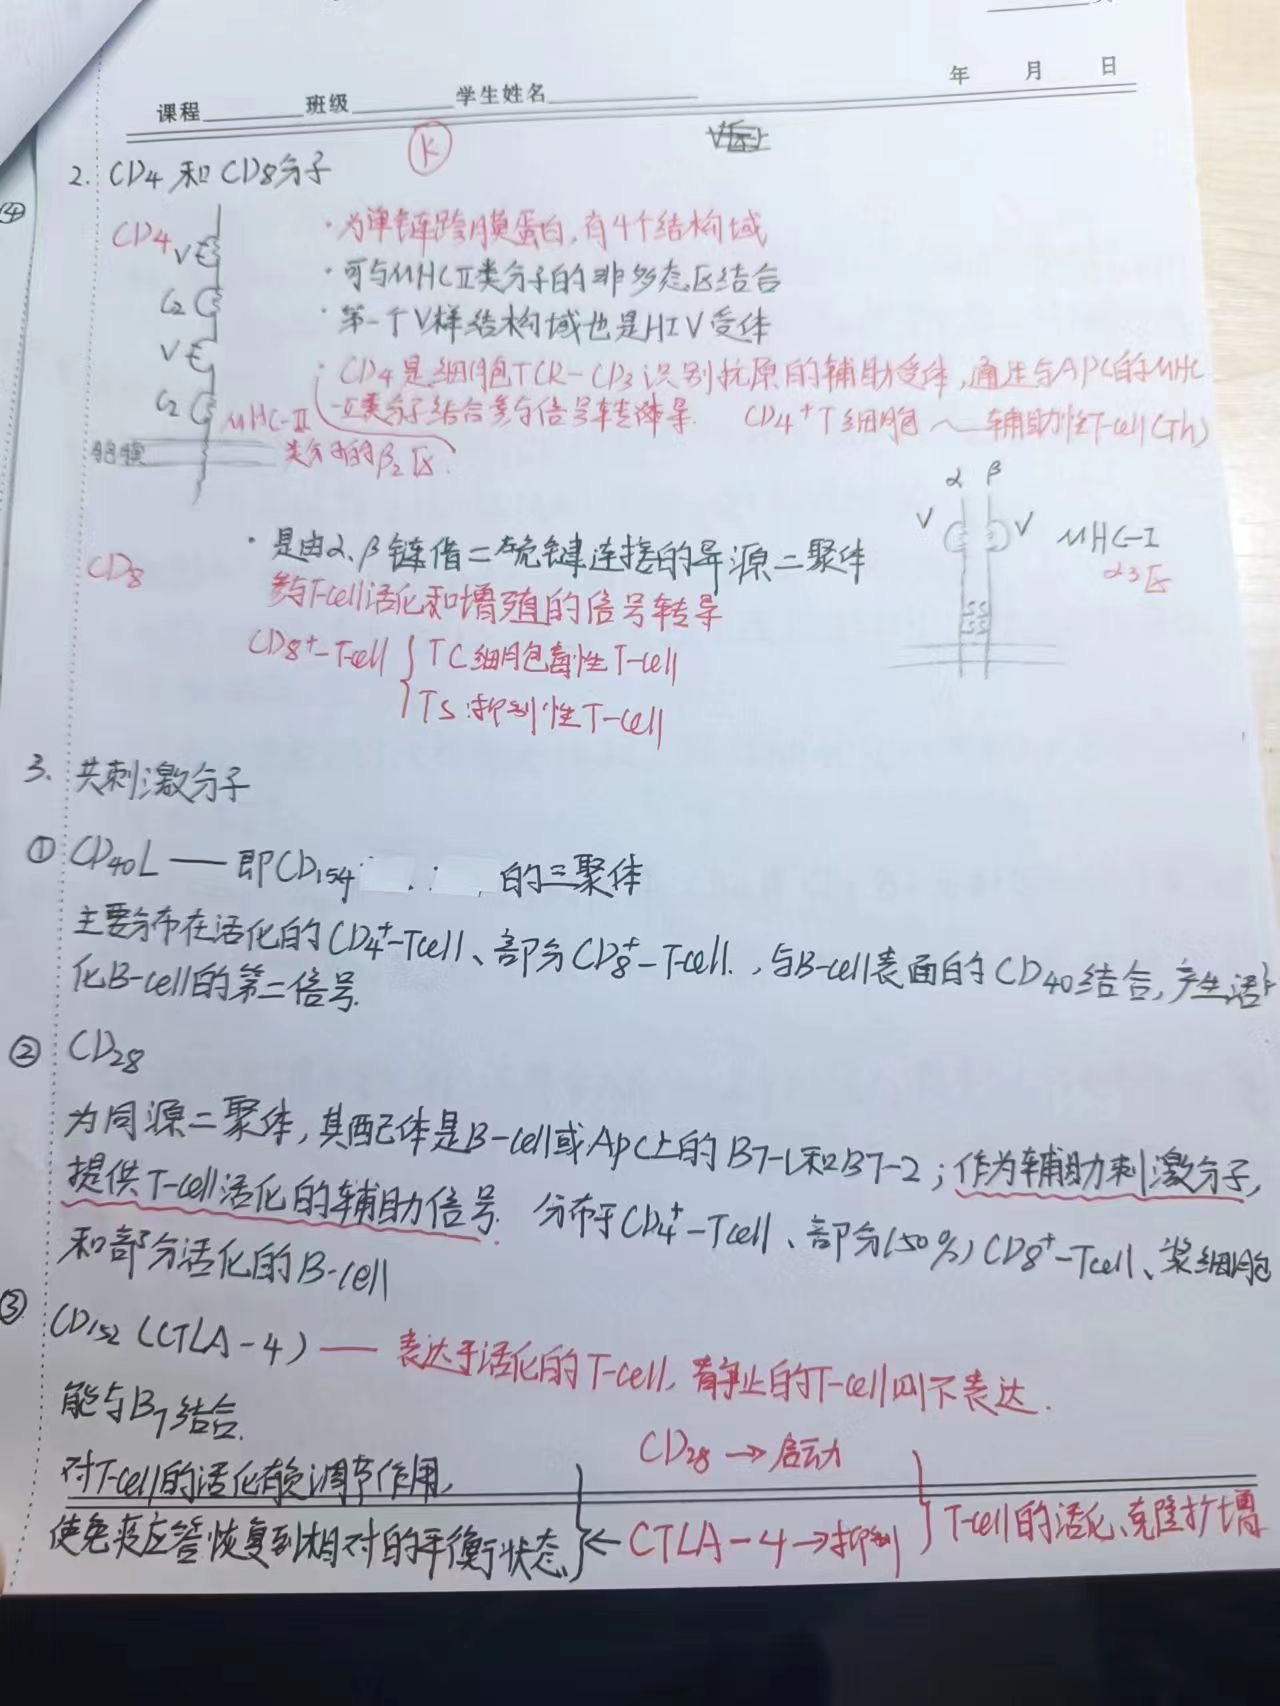 年 月 日
课程 班级 学生姓名
K
2. CD4 和 CD8分子
④
CD4
V
C2
V
C2
胞膜
·为单链跨膜蛋白,有4个结构域
·可与MHCⅡ类分子的非多态区结合
·第一个V样结构域也是HIV受体
·CD4是细胞TCR-CD3识别抗原的辅助受体,通过与APC的MHC
-Ⅱ类分子结合参与信号转导. CD4⁺T细胞~辅助性T-cell(Th)
MHC-Ⅱ
类分子的β2区
α β
V V
MHC-I
α3区
CD8
·是由α、β链借二硫键连接的异源二聚体
参与T-cell活化和增殖的信号转导
CD8⁺-T-cell
TC细胞毒性T-cell
TS:抑制性T-cell
3. 共刺激分子
① CD40L — 即CD154 的三聚体
主要分布在活化的CD4⁺-Tcell、部分CD8⁺-T-cell.,与B-cell表面的CD40结合,产生活
化B-cell的第二信号.
② CD28
为同源二聚体,其配体是B-cell或APC上的B7-1和B7-2;作为辅助刺激分子,
提供T-cell活化的辅助信号. 分布于CD4⁺-Tcell、部分(50%)CD8⁺-Tcell、浆细胞
和部分活化的B-cell
③ CD152 (CTLA-4) — 表达于活化的T-cell,静止的T-cell则不表达.
能与B7结合.
对T-cell的活化有负调节作用,
使免疫应答恢复到相对的平衡状态
CD28→启动
←CTLA-4→抑制
T-cell的活化、克隆扩增